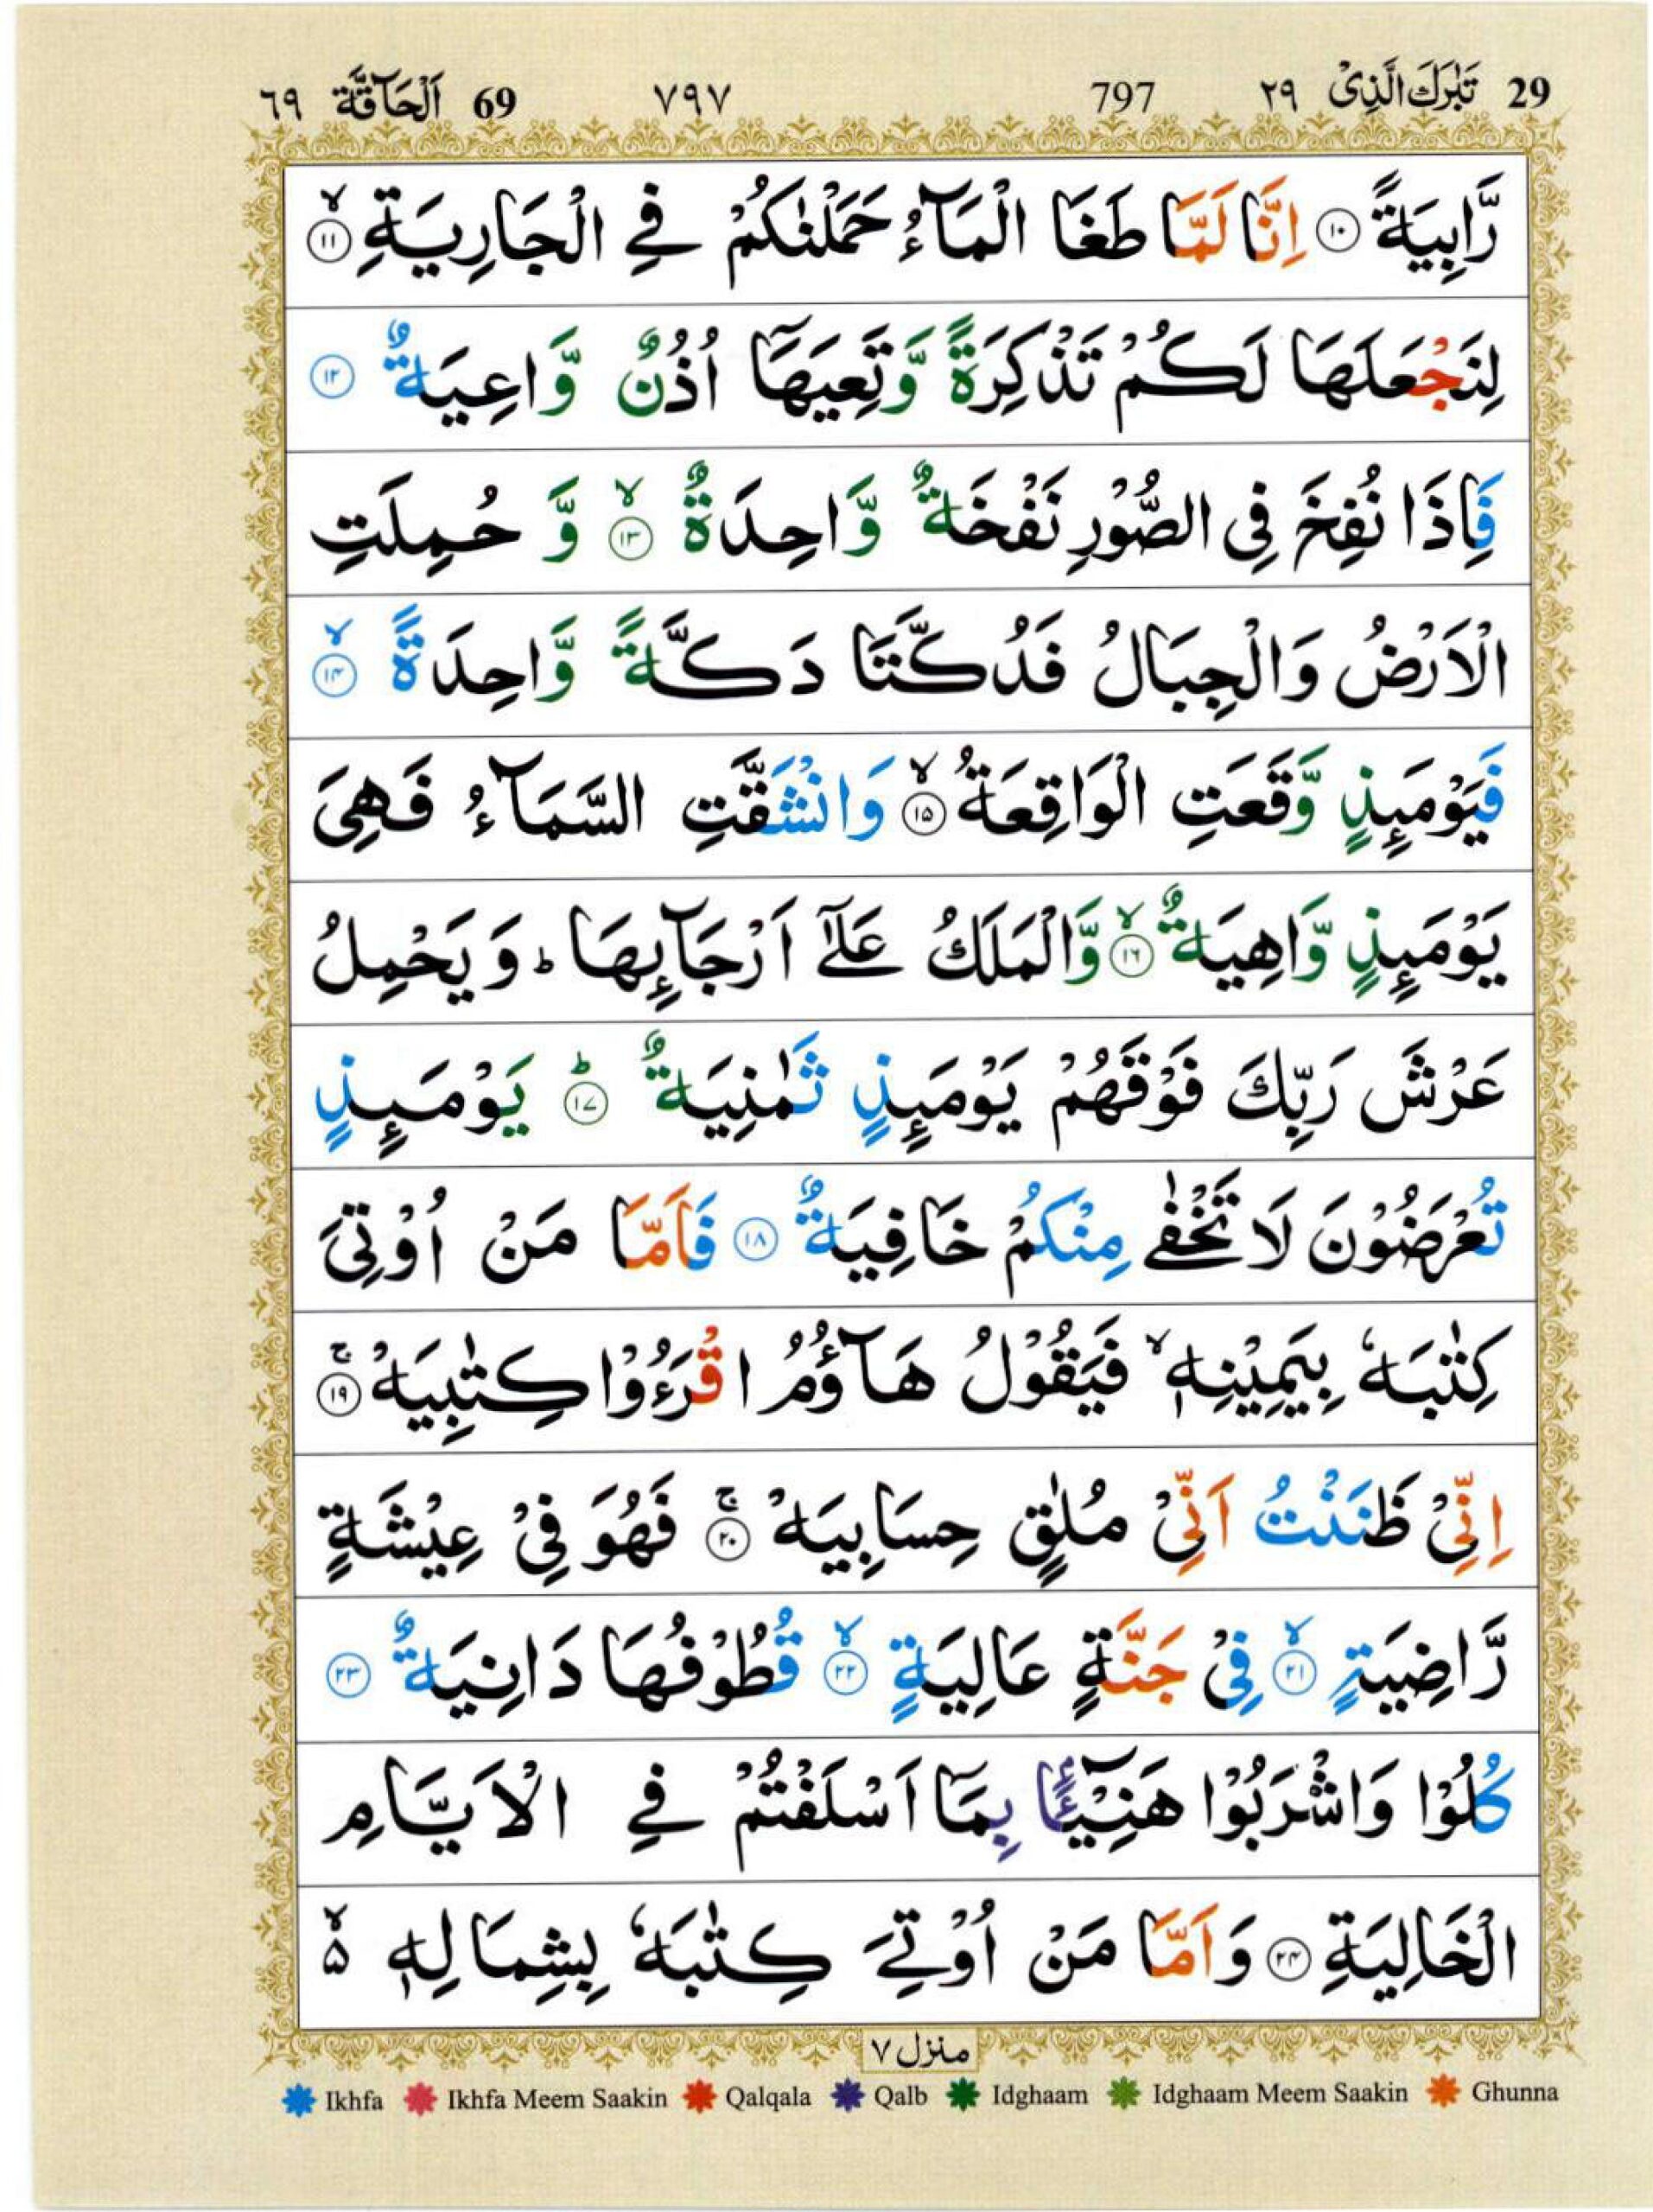 29 تَبٰرَكَ الَّذِیْ ٢٩ 797 ٧٩٧ 69 اَلْحَآقَّة ٦٩
رَّابِیَةً ١٠ اِنَّا لَمَّا طَغَا الْمَآءُ حَمَلْنٰكُمْ فِی الْجَارِیَةِ ۙ ١١
لِنَجْعَلَهَا لَكُمْ تَذْكِرَةً وَّتَعِیَهَاۤ اُذُنٌ وَّاعِیَةٌ ١٢
فَاِذَا نُفِخَ فِی الصُّوْرِ نَفْخَةٌ وَّاحِدَةٌ ۙ ١٣ وَّ حُمِلَتِ
الْاَرْضُ وَالْجِبَالُ فَدُكَّتَا دَكَّةً وَّاحِدَةً ۙ ١٤
فَیَوْمَىِٕذٍ وَّقَعَتِ الْوَاقِعَةُ ۙ ١٥ وَانْشَقَّتِ السَّمَآءُ فَهِیَ
یَوْمَىِٕذٍ وَّاهِیَةٌ ۙ ١٦ وَّالْمَلَكُ عَلٰۤی اَرْجَآىِٕهَا ؕ وَ یَحْمِلُ
عَرْشَ رَبِّكَ فَوْقَهُمْ یَوْمَىِٕذٍ ثَمٰنِیَةٌ ؕ ١٧ یَوْمَىِٕذٍ
تُعْرَضُوْنَ لَا تَخْفٰی مِنْكُمْ خَافِیَةٌ ١٨ فَاَمَّا مَنْ اُوْتِیَ
كِتٰبَهٗ بِیَمِیْنِهٖ ۙ فَیَقُوْلُ هَآؤُمُ اقْرَءُوْا كِتٰبِیَهْ ۚ ١٩
اِنِّیْ ظَنَنْتُ اَنِّیْ مُلٰقٍ حِسَابِیَهْ ۚ ٢٠ فَهُوَ فِیْ عِیْشَةٍ
رَّاضِیَةٍ ۙ ٢١ فِیْ جَنَّةٍ عَالِیَةٍ ۙ ٢٢ قُطُوْفُهَا دَانِیَةٌ ٢٣
كُلُوْا وَاشْرَبُوْا هَنِیْٓـًٔۢا بِمَاۤ اَسْلَفْتُمْ فِی الْاَیَّامِ
الْخَالِیَةِ ٢٤ وَاَمَّا مَنْ اُوْتِیَ كِتٰبَهٗ بِشِمَالِهٖ ۙ۬
منزل ٧
Ikhfa Ikhfa Meem Saakin Qalqala Qalb Idghaam Idghaam Meem Saakin Ghunna